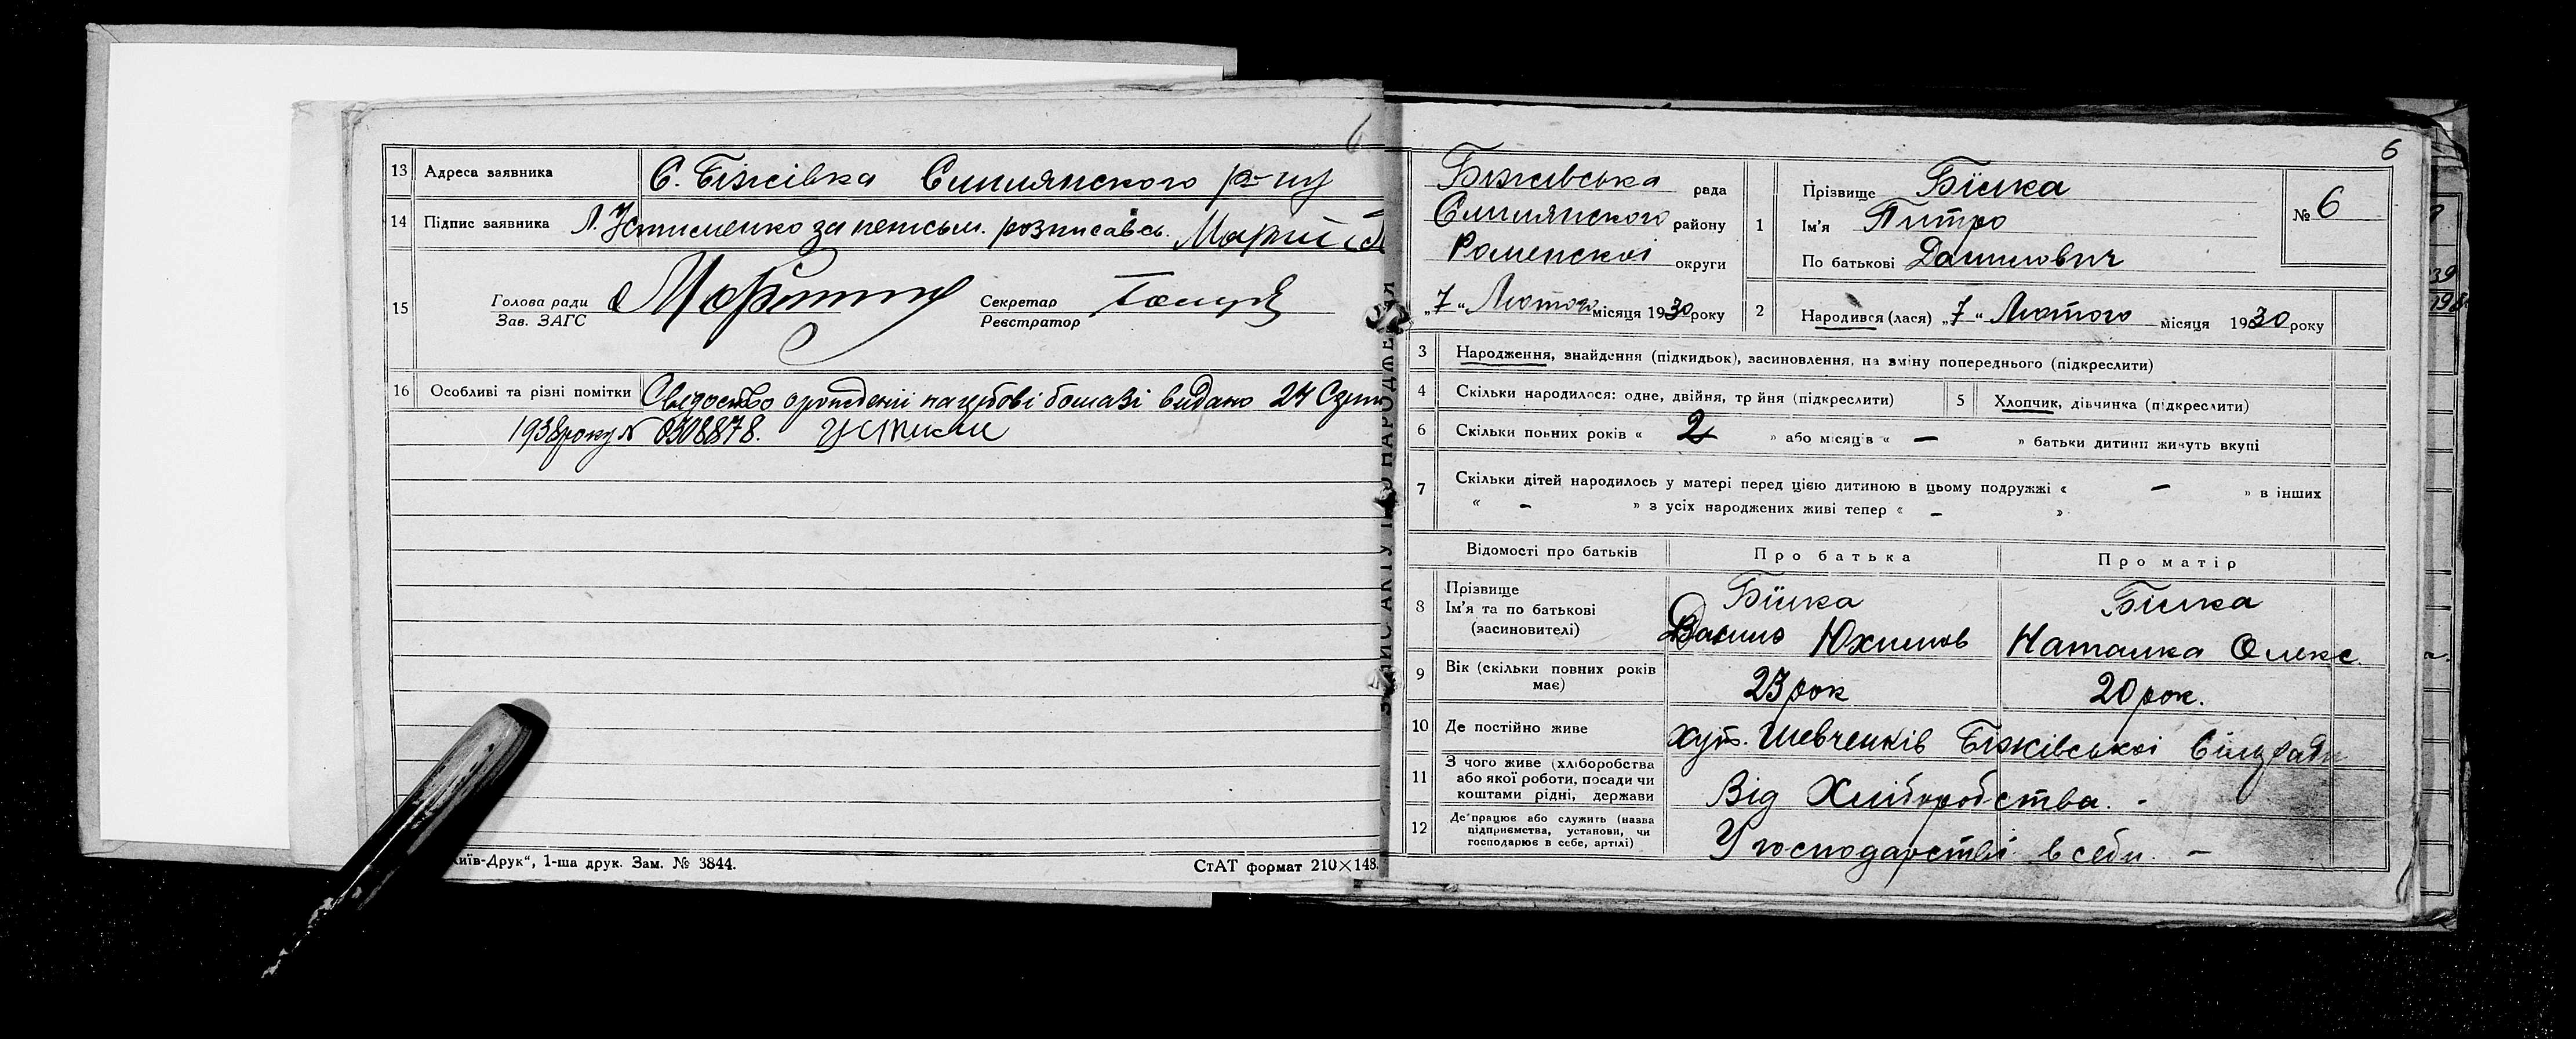 6
13 Адреса заявника С. Біжівка Смілянского р-ну
14 Підпис заявника Л. Устименко за неписьм. розписавсь.
15 Голова ради
Зав. ЗАГС
Секретар
Реєстратор
16 Особливі та різні помітки Свідоство о рождені на гербові бомазі видано 24
1938 року № 0508878.
"Київ-Друк", 1-ша друк. Зам. № 3844. СтАТ формат 210×148.
ЗАПИС АКТУ ПРО НАРОДЖЕННЯ
6
Біжівська рада
Смілянского району
Роменскоі округи
„7“ Лютого місяця 1930 року
1 Прізвище Білка
Ім'я Питро
По батькові Данилович
№ 6
2 Народився (лася) „7“ Лютого місяця 1930 року
3 Народження, знайдення (підкидьок), засиновлення, на зміну попереднього (підкреслити)
4 Скільки народилося: одне, двійня, трійня (підкреслити) 5 Хлопчик, дівчинка (підкреслити)
6 Скільки повних років « 2 » або місяців « – » батьки дитини живуть вкупі
7 Скільки дітей народилось у матері перед цією дитиною в цьому подружжі « – » в інших
« – » з усіх народжених живі тепер « – »
Відомості про батьків Про батька Про матір
8 Прізвище
Ім'я та по батькові
(засиновителі)
Білка Білка
Данило Юхимов Наталка Олекс.
9 Вік (скільки повних років має) 23 рок 20 рок.
10 Де постійно живе хут. Шевченків Біжівськоі Сілради
11 З чого живе (хліборобства
або якої роботи, посади чи
коштами рідні, держави
Від Хліборобства. -
12 Де працює або служить (назва
підприємства, установи, чи
господарює в себе, артілі)
У господарстві в себи. –